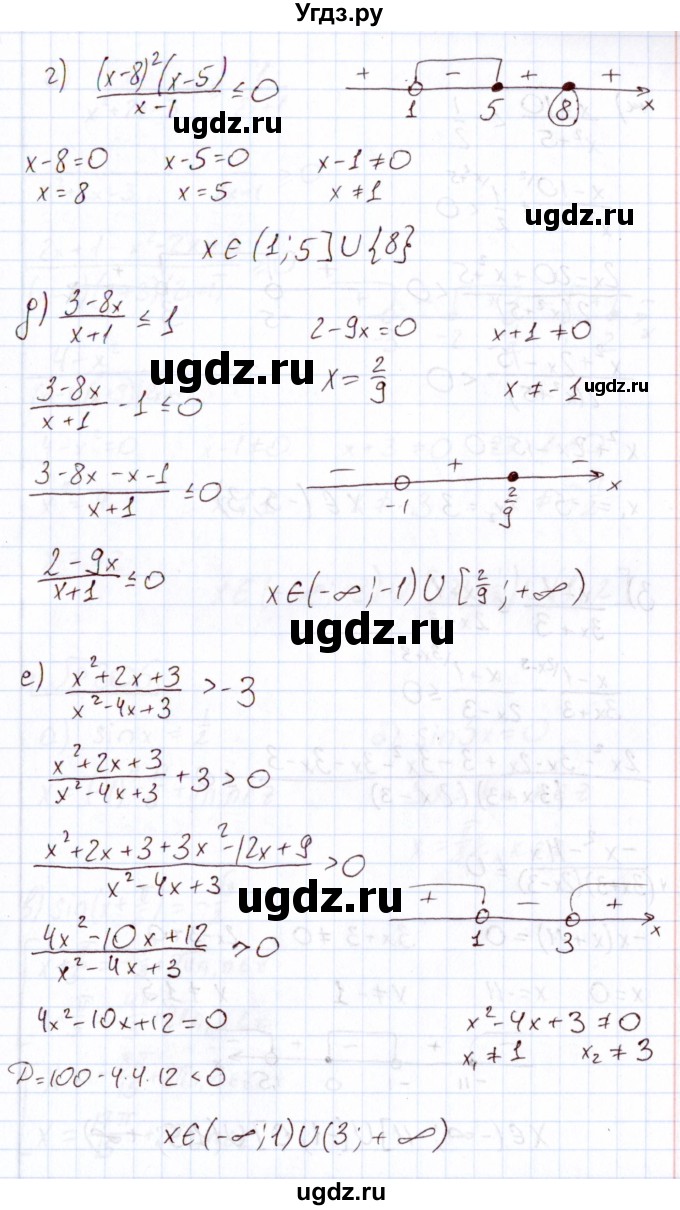 Угдз.ру
г) (x-8)²(x-5)/(x-1) ≤ 0
+ - + +
1 5 8 x
ugdz.ru
ugdz.ru
x-8=0 x-5=0 x-1≠0
x=8 x=5 x≠1
x∈(1;5]∪{8}
д) (3-8x)/(x+1) ≤ 1 2-9x=0 x+1≠0
ugdz.ru
x=2/9 x≠-1 ugdz.ru
(3-8x)/(x+1) - 1 ≤ 0
(3-8x-x-1)/(x+1) ≤ 0
- + -
-1 2/9 x
(2-9x)/(x+1) ≤ 0 x∈(-∞;-1)∪[2/9;+∞)
ugdz.ru
е) (x²+2x+3)/(x²-4x+3) > -3
(x²+2x+3)/(x²-4x+3) + 3 > 0
(x²+2x+3+3x²-12x+9)/(x²-4x+3) > 0
ugdz.ru
+ - +
1 3 x
(4x²-10x+12)/(x²-4x+3) > 0
4x²-10x+12=0 x²-4x+3≠0
x₁≠1 x₂≠3
D=100-4·4·12<0
x∈(-∞;1)∪(3;+∞)
ugdz.ru
ugdz.ru